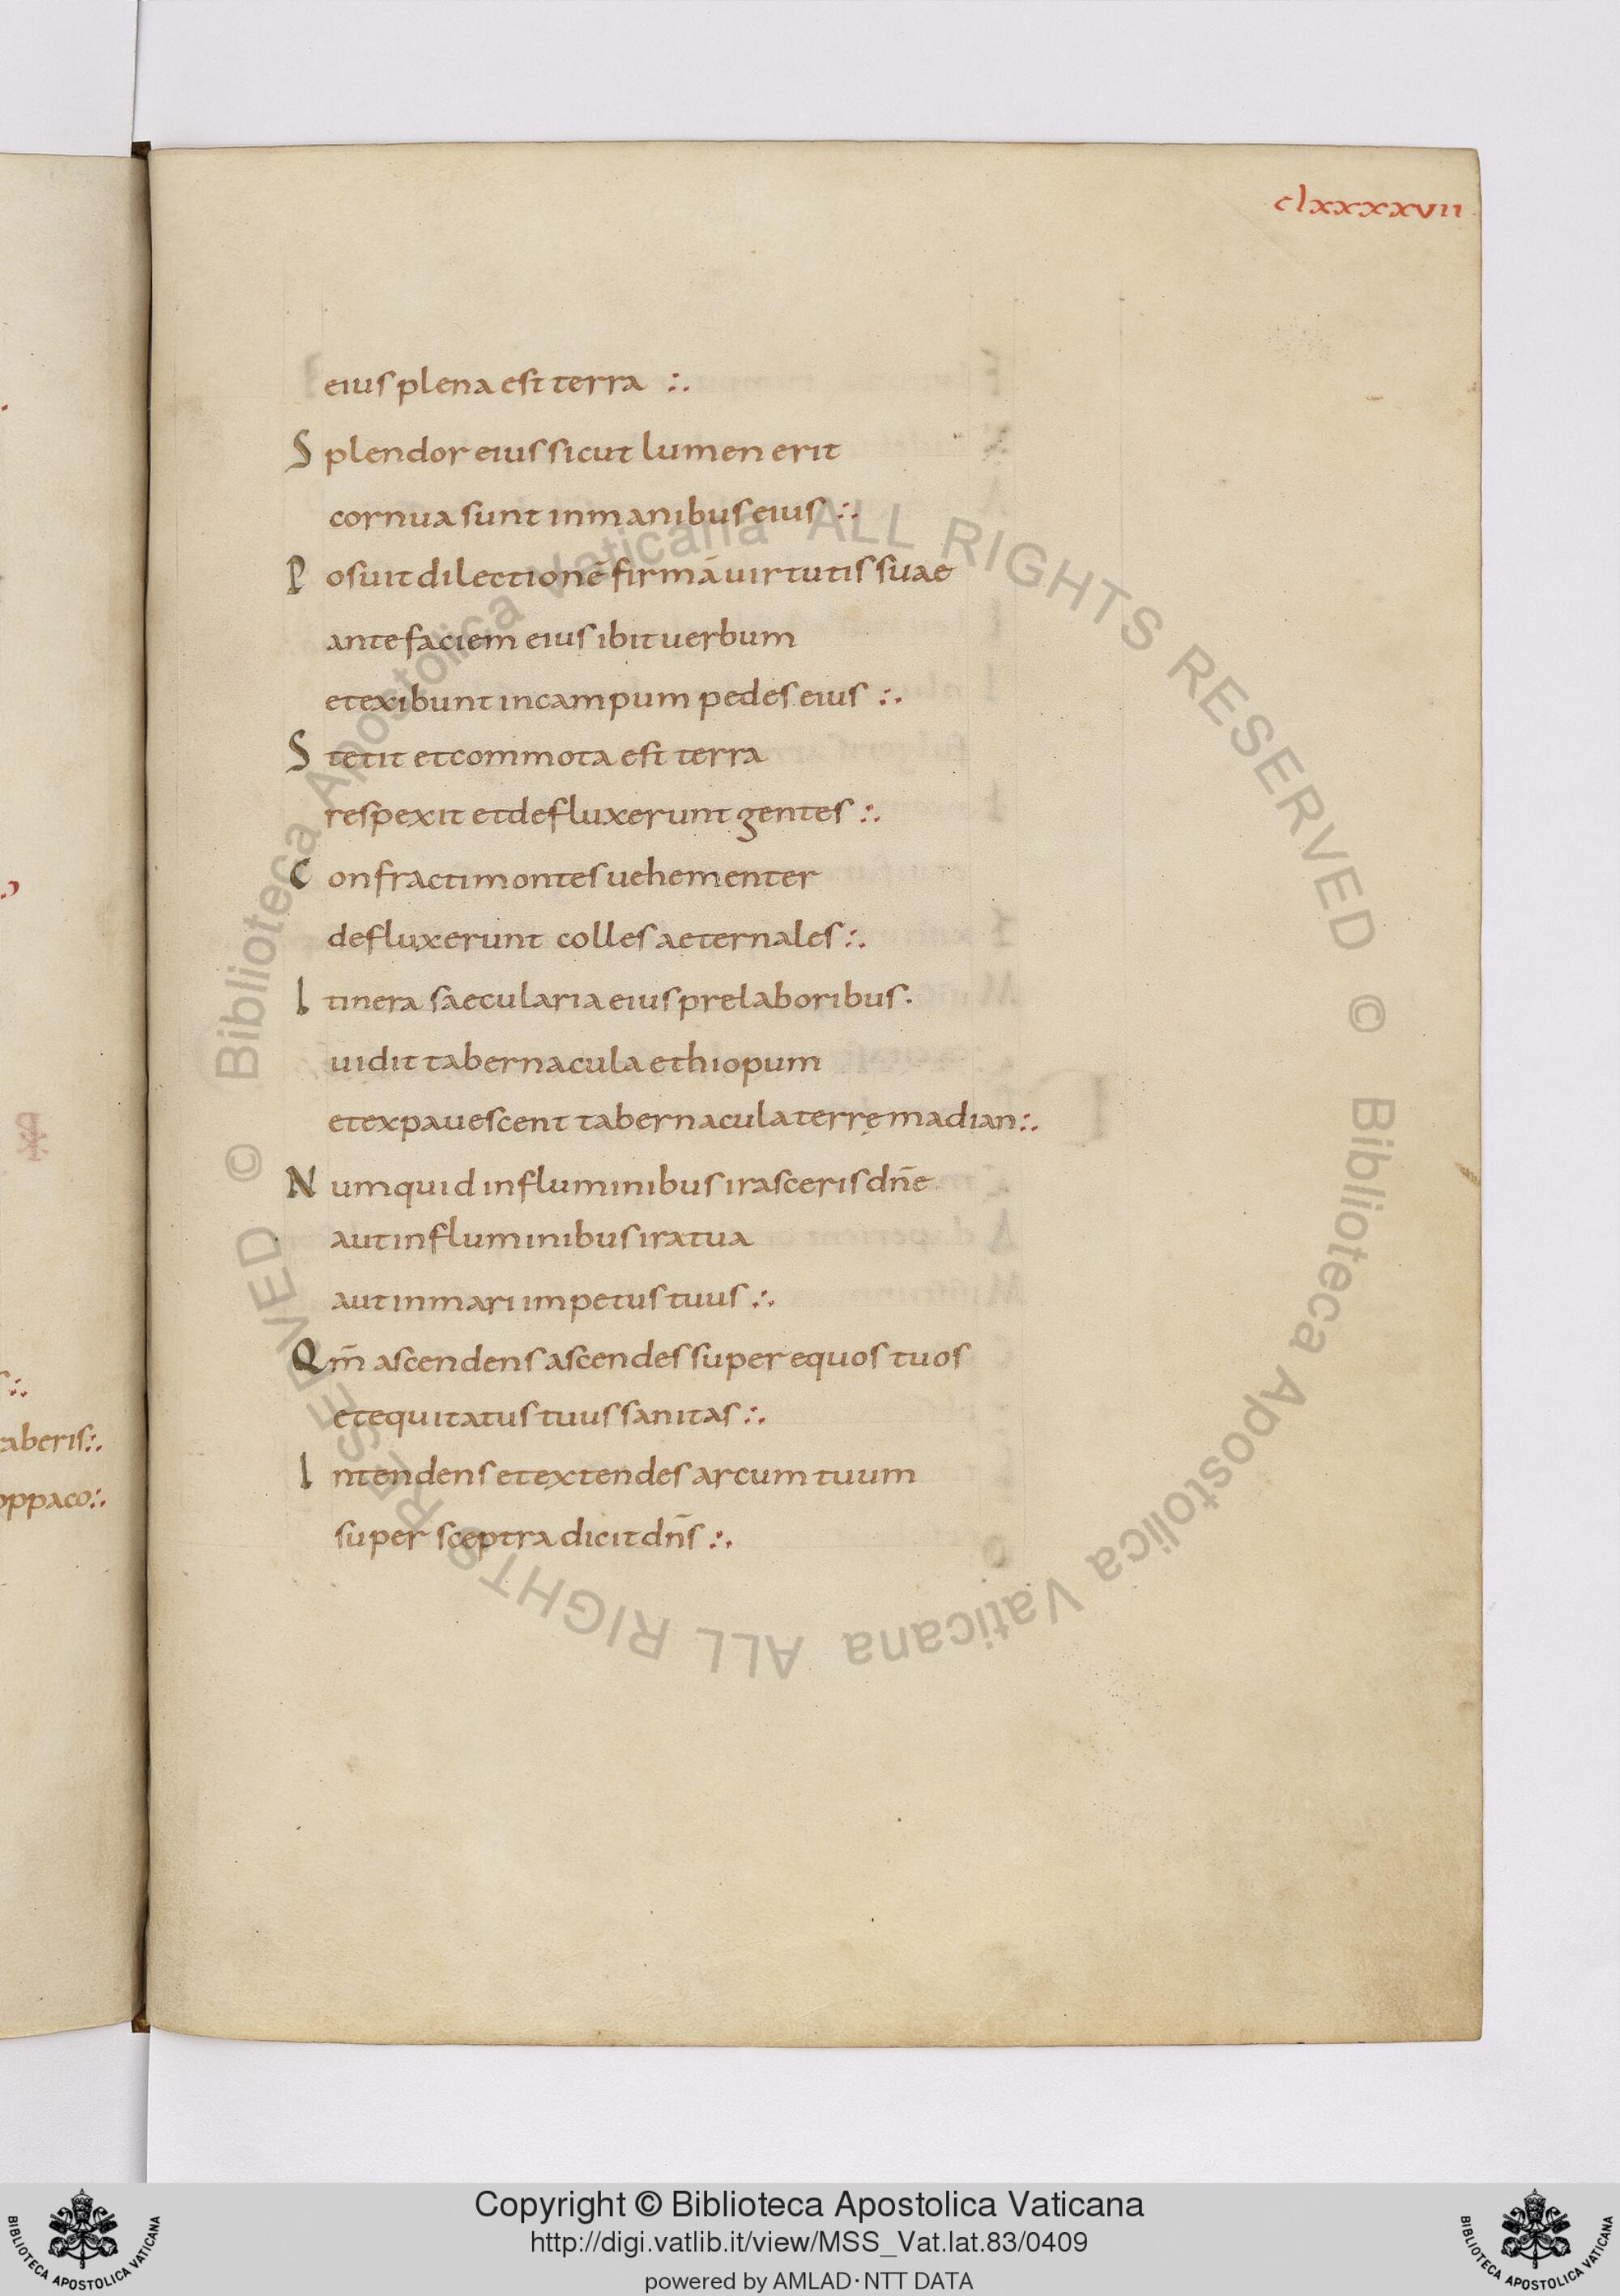 clxxxxvii
eius plena est terra ∴
Splendor eius sicut lumen erit
cornua sunt in manibus eius ∴
Posuit dilectionē firmā uirtutis suae
ante faciem eius ibit uerbum
et exibunt in campum pedes eius ∴
Stetit et commota est terra
respexit et defluxerunt gentes ∴
Confracti montes uehementer
defluxerunt colles aeternales ∴
Itinera saecularia eius prelaboribus.
uidit tabernacula ethiopum
et expauescent tabernacula terrę madian ∴
Numquid in fluminibus irasceris dn̄e
aut in fluminibus ira tua
aut in mari impetus tuus ∴
Qm̄ ascendens ascendes super equos tuos
et equitatus tuus sanitas ∴
Intendens et extendes arcum tuum
super sceptra dicit dn̄s ∴
aberis ∴
oppaco ∴
© Biblioteca Apostolica Vaticana ALL RIGHTS RESERVED © Biblioteca Apostolica Vaticana ALL RIGHTS RESERVED
Copyright © Biblioteca Apostolica Vaticana
http://digi.vatlib.it/view/MSS_Vat.lat.83/0409
powered by AMLAD·NTT DATA
BIBLIOTECA APOSTOLICA VATICANA
BIBLIOTECA APOSTOLICA VATICANA